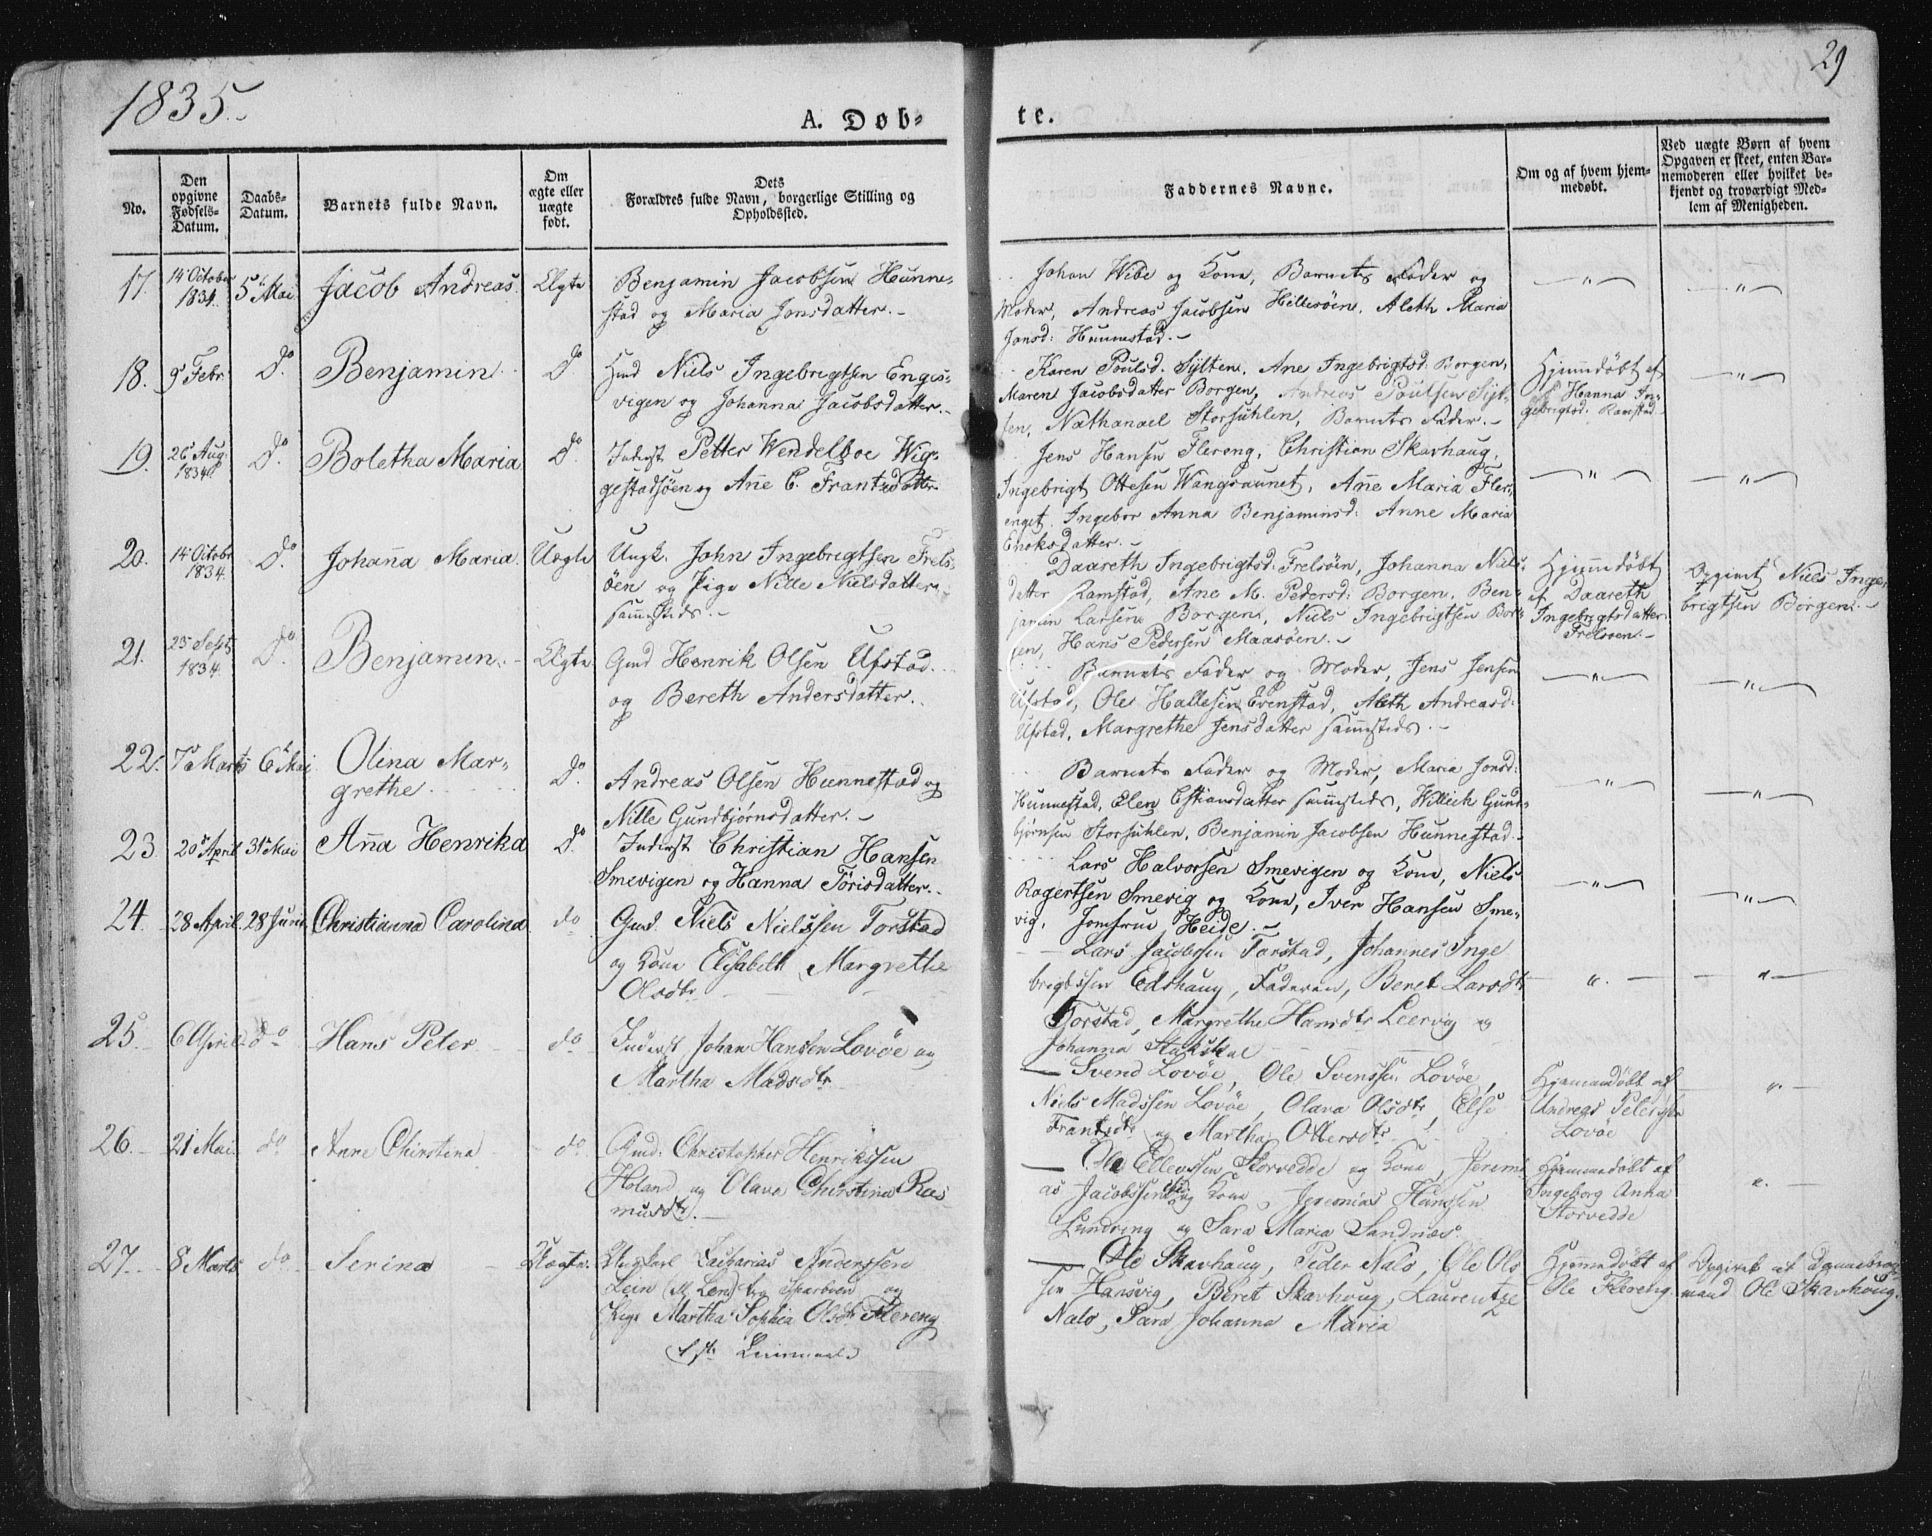 1835.
29
A. Døb-
te.
No.
Den
opgivne
Fødsels-
Datum.
Daabs-
Datum.
Barnets fulde Navn.
Om
ægte eller
uægte
født.
Dets
Forældres fulde Navn, borgerlige Stilling og
Opholdssted.
Faddernes Navne.
Om og af hvem hjem-
medøbt.
Ved uægte Børn af hvem
Opgaven er skeet, enten Bar-
nemoderen eller hvilket be-
kjendt og troværdigt Med-
lem af Menigheden.
17.
14 October
1834.
5 Mai
Jacob Andreas.
Ægte
Benjamin Jacobsen Hunne-
stad og Maria Jonsdatter.-
Johan Wibe og Kone, Barnets Fader og
Moder, Andreas Jacobsen Hillesöen, Aleth Maria
Jonsd: Hunnestad.-
18.
9 Febr.
do
Benjamin.
do
Gmd Niels Ingebrigtsen Engis-
vigen og Johanna Jacobsdatter.-
Karen Poulsd. Sylten, Ane Ingebrigtsd: Borgen,
Maren Jacobsdatter Borgen, Andreas Poulsen Syl-
ten, Nathanael Storsuhlen, Barnets Fader.-
Hjemmdøbt af
Hanna In-
gebrigtsd: Ramstad
19.
26 Aug.
1834.
do
Boletha Maria
do
Inderst Petter Wendelboe Wig-
gestadsöen og Ane C. Frantzdatter
Jens Hansen Flereng, Christian Skarhaug,
Ingebrigt Ottesen Wangsaunet, Ane Maria Fler-
enget, Ingebor Anna Benjaminsd: Anne Maria
Enoksdatter.-
20.
14 Octobr
1834.
do
Johana Maria.
Uægte
Ungk. John Ingebrigtsen Frels-
öen og Pige Nille Nielsdatter
sammesteds.-
Daareth Ingebrigtsd: Frelsöen, Johanna Niels-
datter Ramstad, Ane M. Pedersd: Borgen, Ben-
jamin Larsen Borgen, Niels Ingebrigtsen Bor-
gen, Hans Pedersen Maasöen.-
Hjemmdøbt
af Daareth
Ingebrigtsdatter
Frelsöen.-
Opgivet Niels Inge-
brigtsen Borgen.-
21.
25 Septr
1834.
do
Benjamin.-
Ægte
Gmd Henrik Olsen Ufstad.
og Bereth Andersdatter.
Barnets Fader og Moder, Jens Jensen
Ufstad, Ole Hallesen Evenstad, Aleth Andreasd:
Ufstad, Margrethe Jensdatter sammesteds.-
22.
7 Marts
6 Mai
Olina Mar-
grethe.
do
Andreas Olsen Hunnestad og
Nille Gundbjørnsdatter.-
Barnets Fader og Moder, Maria Jonsd:
Hunnestad, Elen Estiansdatter sammesteds, Willich Gund-
bjørnsen Storsuhlen, Benjamin Jacobsen Hunnestad.
23
20 April
31 Mai
Ana Henrika
do
Inderst Christian Hansen
Smevigen og Hanna Törisdatter.
Lars Halvorsen Smevigen og Kone, Niels
Rogertsen Smevig og Kone, Iver Hansen Sme-
vig, Jomfrue Heide.-
24.
28 April.
28 Juni
Christianna Carolina
do
Gmd. Niels Nielssen Torstad
og Kone Elisabeth Margrethe
Olsdtr
Lars Jacobssen Torstad, Johannes Inge
brigtssen Edshaug, Faderen, Beret Larsdtr
Torstad, Margrethe Hansdtr Leervig og
Johanna
25.
6 April
do
Hans Peter
do
Inderst Johan Hanssen Lovöe og
Martha Madsdtr
Svend Lovöe, Ole Svenssen Lovöe,
Niels Madssen Lovöe, Olava Olsdtr, Else
Frantzdtr og Martha Ottersdtr
Hjemmedöbt af
Andreas Peterssen
Lovöe
26.
21 Mai.
do
Anne Chirstina
do
Gmd. Christopher Henrikssen
Holand og Olava Chirstina Ras
musdtr.
Ole Ellevssen Storvedde og Kone, Jeremi
as Jacobssen og Kone, Jeremias Hanssen
Lundring og Sara Maria Sandnæs.
Hjemmedöbt af
Ingeborg Anna
Storvedde
27.
8 Marts
do
Serina
Uægte.
Ungkarl Zacharias Anderssen
Lein fra Sparboen og
Pige Martha Sophia Olsdtr Flereng
1ste Leiermaal
Ole Skavhaug, Peder Nalo, Ole Ols
sen Hansvig, Beret Skavhoug, Laurentze
Nalo, Sara Johanna Maria
Hjemmedöbt af
Ole Flereng.
Opgivet af Dannebrogs
mand Ole Skavhoug.